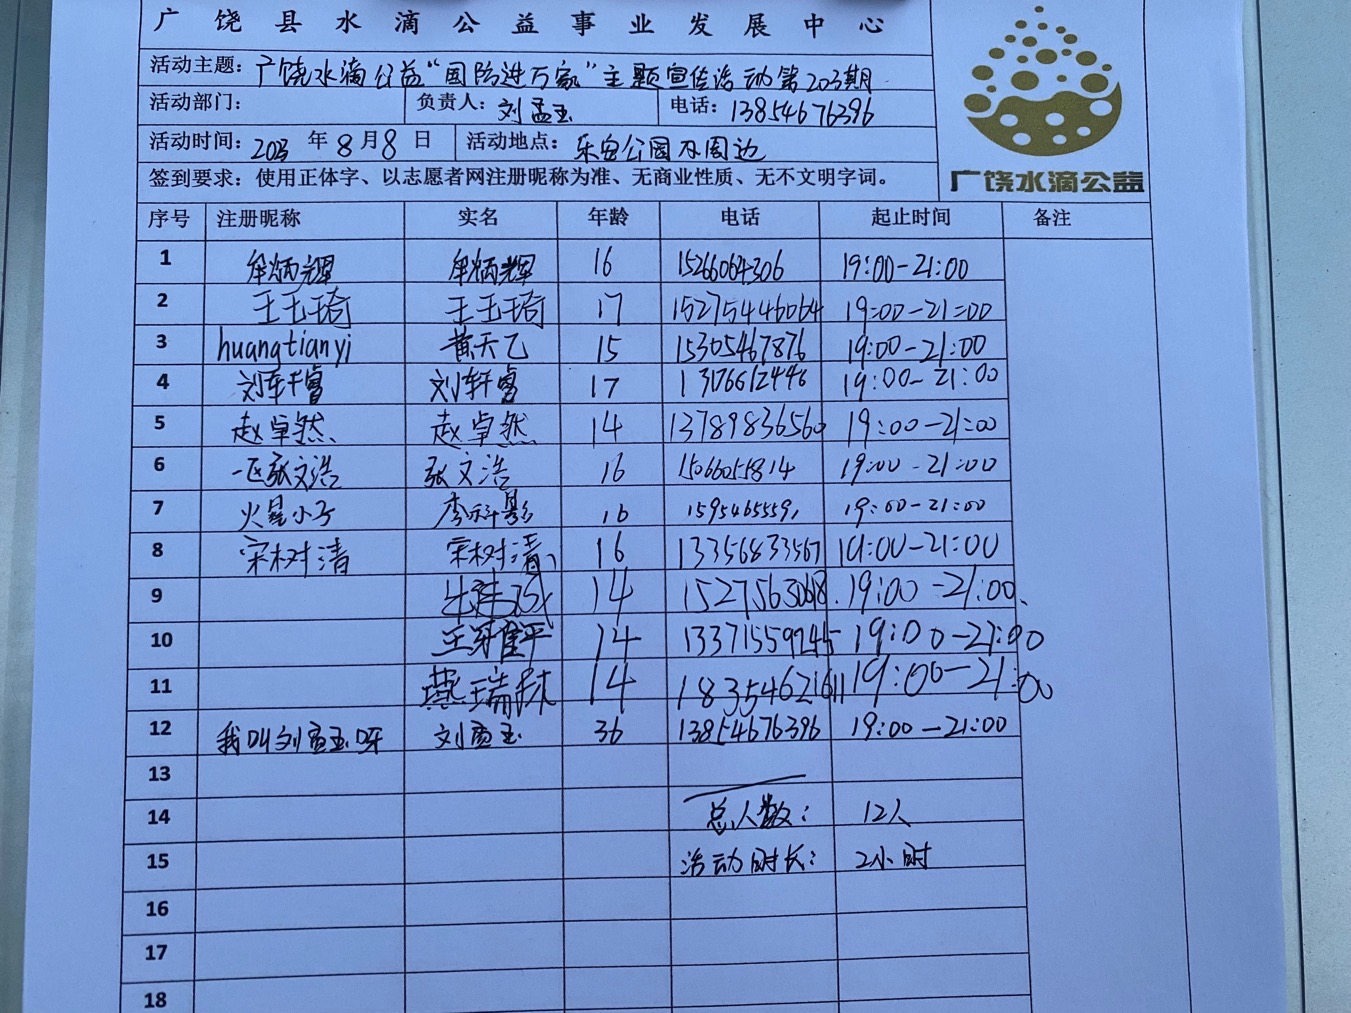 广饶县水滴公益事业发展中心
活动主题：广饶水滴公益“国防进万家”主题宣传活动第203期
活动部门： 负责人：刘孟玉 电话：13854676396
活动时间：2023年8月8日 活动地点：乐安公园及周边
签到要求：使用正体字、以志愿者网注册昵称为准、无商业性质、无不文明字词。
广饶水滴公益
序号 注册昵称 实名 年龄 电话 起止时间 备注
1 牟炳辉 牟炳辉 16 15266064306 19:00-21:00
2 王玉琦 王玉琦 17 15275446064 19:00-21:00
3 huangtianyi 黄天乙 15 15305467876 19:00-21:00
4 刘轩睿 刘轩睿 17 13176612446 19:00-21:00
5 赵卓然 赵卓然 14 13789836560 19:00-21:00
6 一区张文浩 张文浩 16 15066055814 19:00-21:00
7 火星小子 李科影 16 15954655591 19:00-21:00
8 宋树清 宋树清 16 13356833567 19:00-21:00
9 14 15275630618 19:00-21:00
10 14 13371559745 19:00-21:00
11 燕瑞 14 18354621611 19:00-21:00
12 我叫刘孟玉呀 刘孟玉 36 13854676396 19:00-21:00
13
14 总人数： 12人
15 活动时长： 2小时
16
17
18